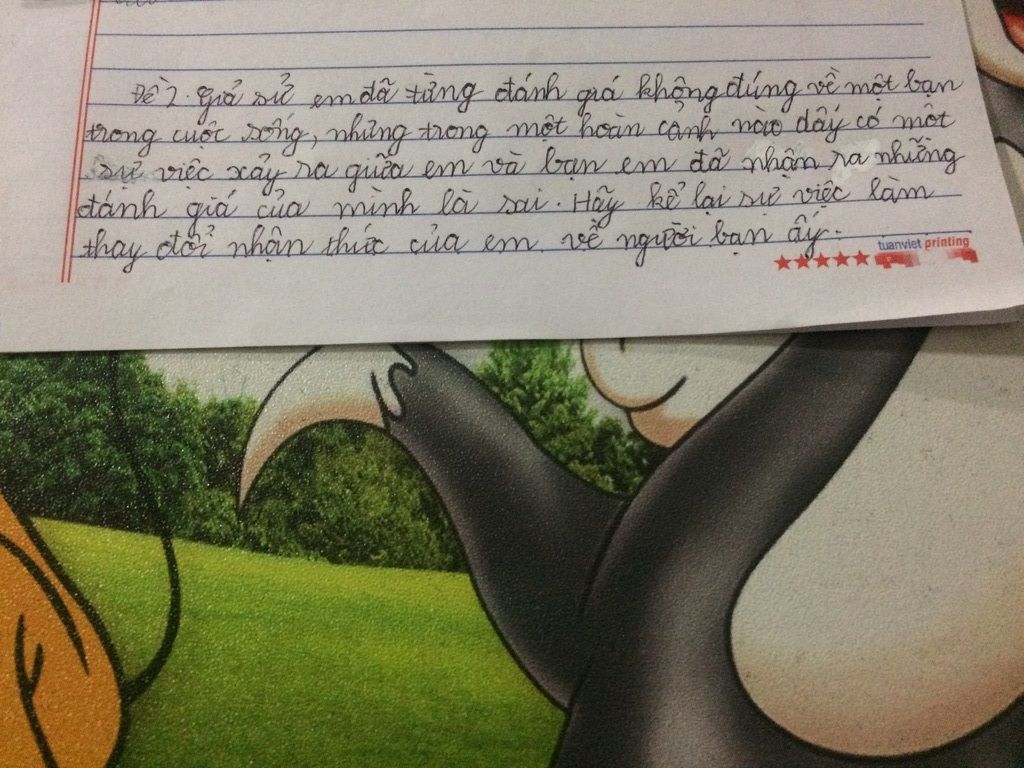 Đề 2. Giả sử em đã từng đánh giá không đúng về một bạn
trong cuộc sống, nhưng trong một hoàn cảnh nào đấy có một
sự việc xảy ra giữa em và bạn em đã nhận ra những
đánh giá của mình là sai. Hãy kể lại sự việc làm
thay đổi nhận thức của em về người bạn ấy.
tuanviet printing